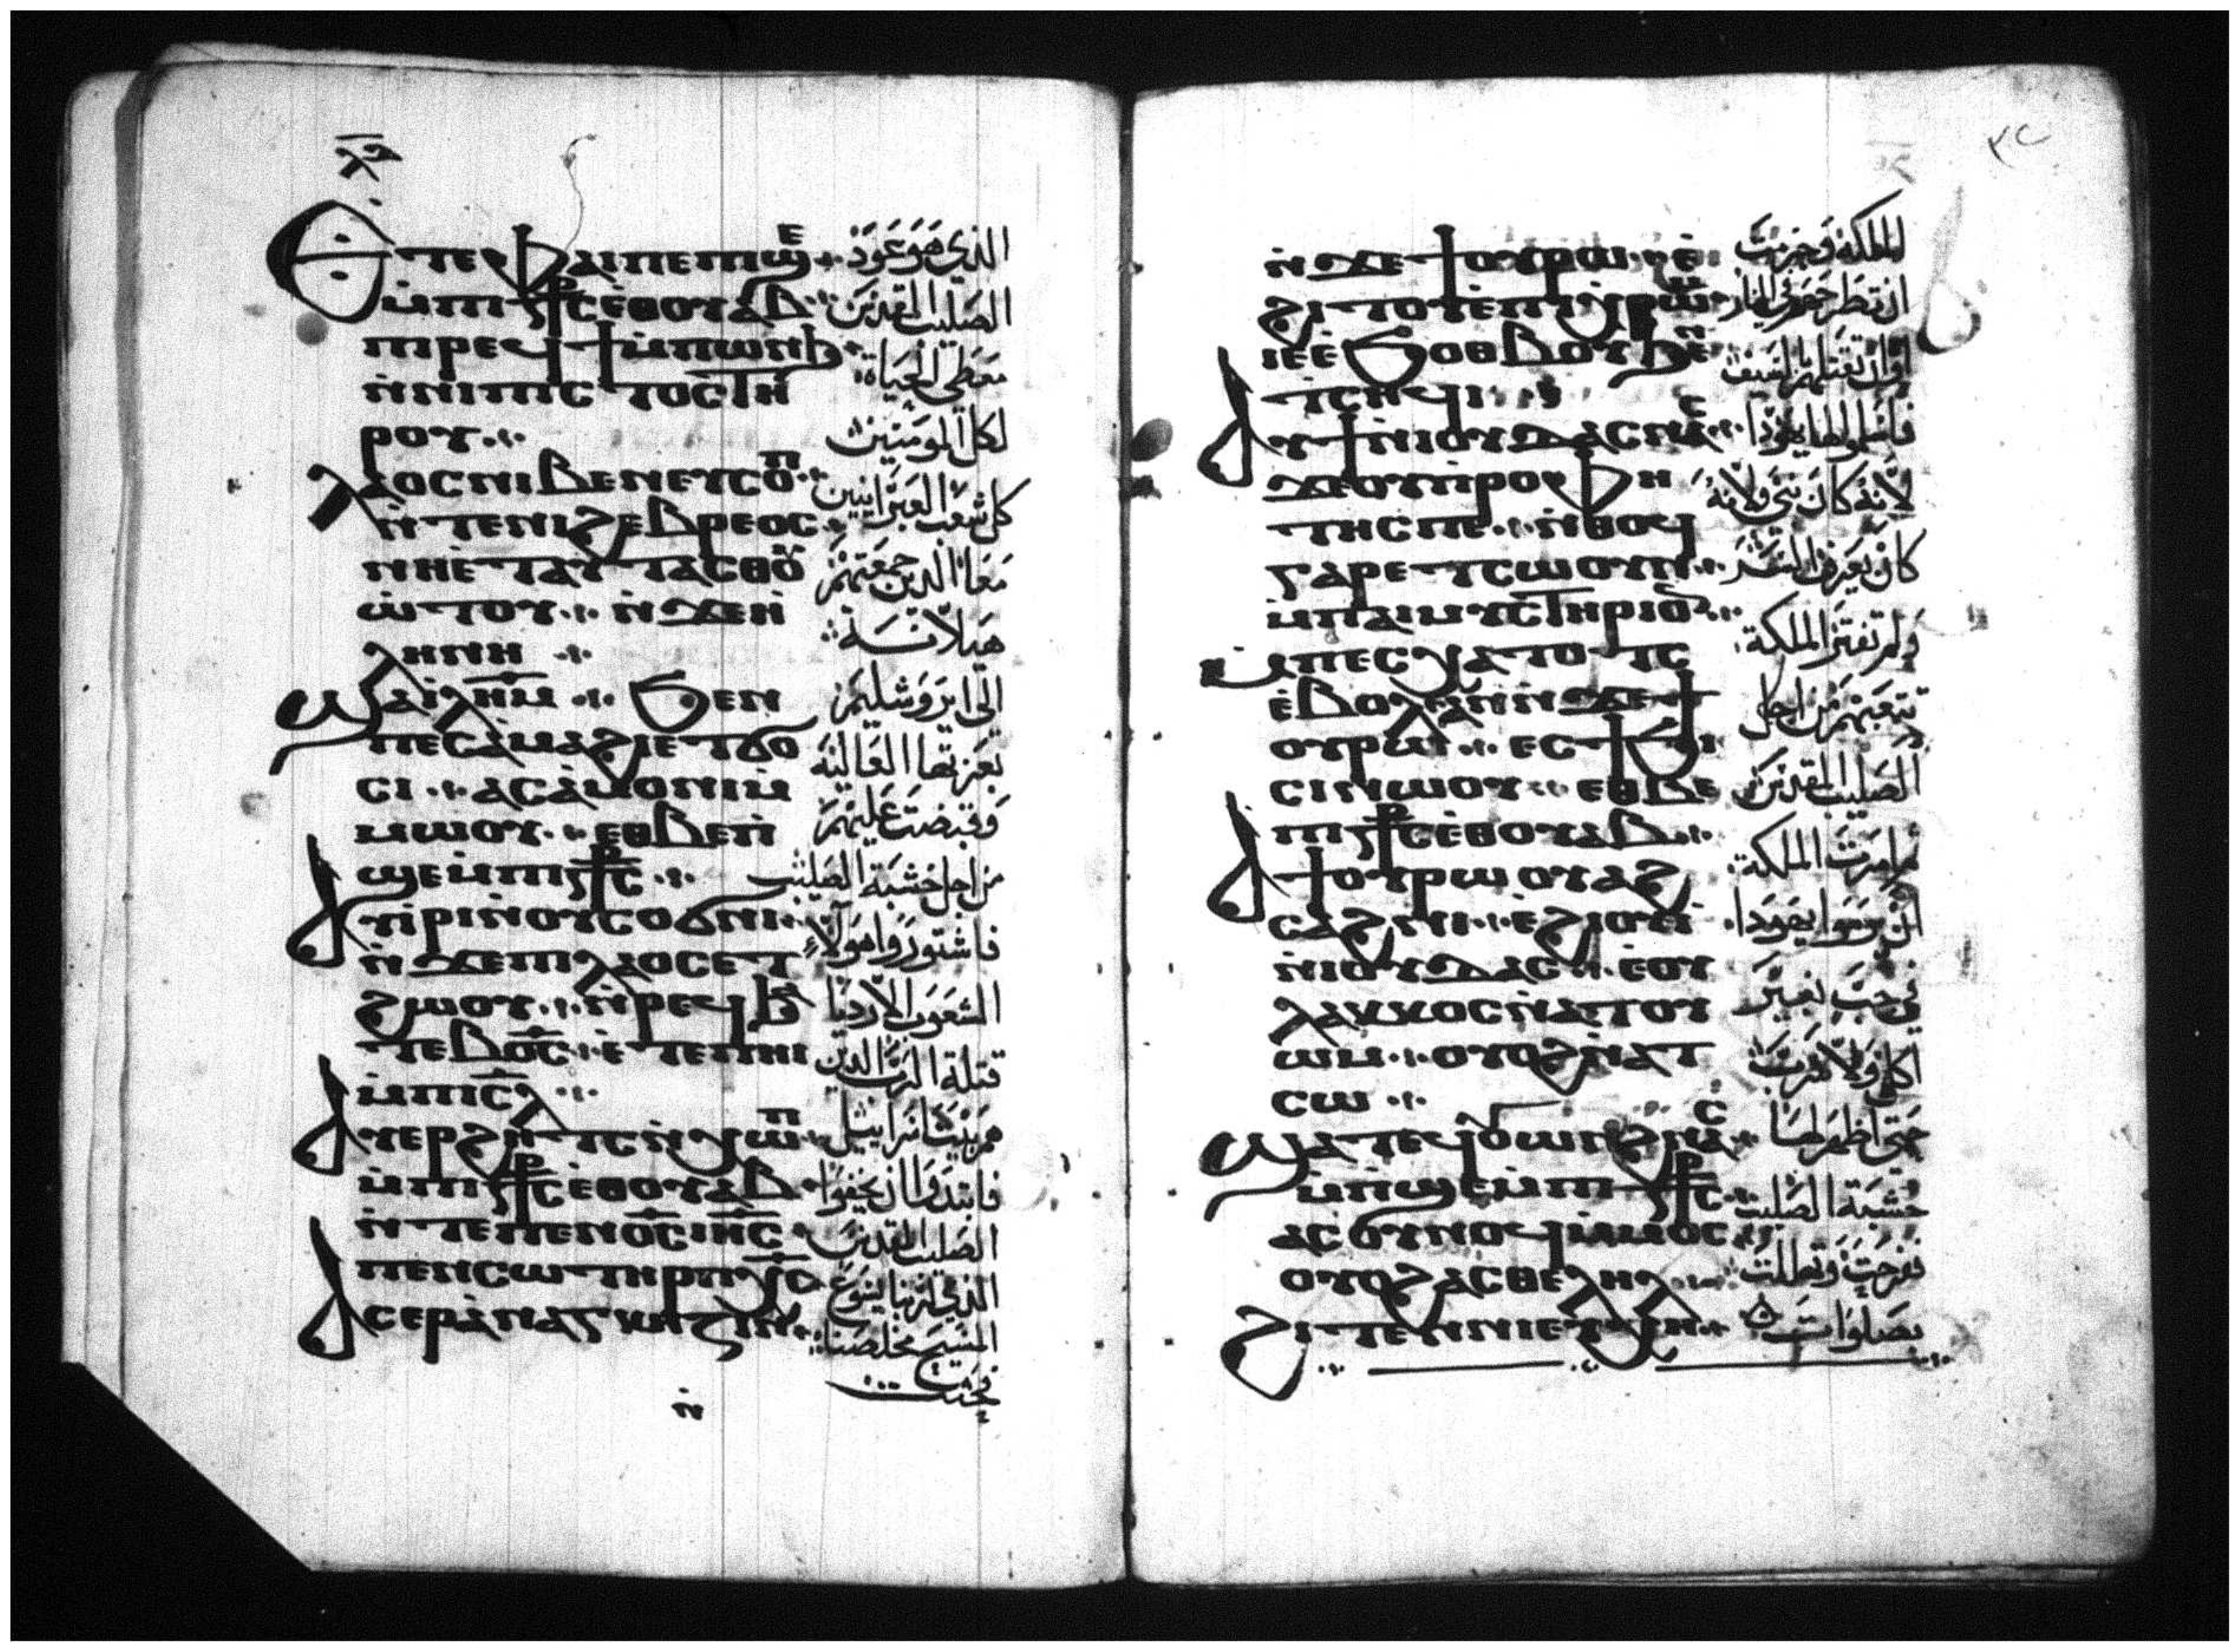 ⲗ̅ⲁ̅
ⲉⲧⲉⲫⲁⲓⲡⲉⲡⲓϣⲉ
ⲙ̀ⲡⲓⲥ̅ⲧ̅ⲣ̅ⲥ̅ⲉⲑⲟⲩⲁⲃ
ⲡⲓⲣⲉϥϯⲙ̀ⲡⲱⲛϧ
ⲛ̀ⲛⲓⲡⲓⲥⲧⲟⲥⲧⲏ
ⲣⲟⲩ
ⲗⲁⲟⲥⲛⲓⲃⲉⲛⲉⲩⲥⲟⲡ
ⲛ̀ⲧⲉⲛⲓϩⲉⲃⲣⲉⲟⲥ
ⲛⲏⲉ̀ⲧⲁⲩⲧⲁⲥⲑⲟ
ⲱ̀ⲧⲟⲩ ⲛ̀ϫⲉⲛ̀
ⲗⲏⲛⲏ
ϣⲁⲓ̀ⲗ̅ⲏ̅ⲙ̅ ϧⲉⲛ
ⲡⲉⲥⲁ̀ⲙⲁϩⲓⲉⲧϭⲟ
ⲥⲓ ⲁⲥⲁ̀ⲙⲟⲛⲓⲙ̀
ⲙⲱⲟⲩ ⲉⲑⲃⲉⲡ̀
ϣⲉⲙ̀ⲡⲓⲥ̅ⲧ̅ⲣ̅ⲥ̅
ⲁⲩⲓ̀ⲣⲓⲛ̀ⲟⲩⲥⲟϭⲛⲓ
ⲛ̀ϫⲉⲡⲓⲗⲁⲟⲥⲉⲧ
ϩⲱⲟⲩ ⲛ̀ⲣⲉϥϧⲱ
ⲧⲉⲃⲟ̅ⲥ̅ ⲉ̀ⲧⲉⲡⲏⲓ
ⲙ̀ⲡⲓⲥ̅ⲗ̅
ⲁⲩⲉⲣϩⲏⲧⲥⲛ̀ⲭⲱⲡ
ⲙ̀ⲡⲓⲥ̅ⲧ̅ⲣ̅ⲥ̅ⲉ̀ⲑⲟⲩⲁⲃ
ⲛ̀ⲧⲉⲡⲉⲛⲟ̅ⲥ̅ⲓⲏ̅ⲥ̅
ⲡⲉⲛⲥⲱⲧⲏⲣⲡⲭ̅ⲥ̅
ⲁⲥⲉⲣⲁ̀ⲛⲁⲅⲕⲁⲍⲓⲛ
ⲛ̀
الذي هو عود
الصليب المقدس
معطي الحياة
لكل المومنين
كل شعب العبرانيين
معا الدين جمعتهم
هيلانة
الى ايروشليم
بعزتها العالية
وقبضت عليهم
من اجل خشبة الصليب
فاشتوروا هولاء
الشعوب الاردياء
قتلة الرب الدين
هم بيت اسراييل
فابتدوا ان يخفوا
الصليب المقدس
الذي لربنا يسوع
المسيح مخلصنا

ⲛ̀ϫⲉϯⲟⲩⲣⲱ ⲉ̀
ϩⲓⲧⲟⲩⲉ̀ⲡⲓⲭⲣⲱⲙ
ⲓⲉⲉ̀ϧⲟⲑⲃⲟⲩϧⲉⲛ
ⲧⲥⲏϥⲓ
ⲁⲩϯⲛⲓⲟⲩⲇⲁⲥⲛⲁⲥ
ϫⲉⲟⲩⲡⲣⲟⲫⲏ
ⲧⲏⲥⲡⲉ ⲛ̀ⲑⲟϥ
ⲅⲁⲣⲉⲧⲥⲱⲟⲩⲛ
ⲙ̀ⲡⲁⲓⲙⲩⲥⲧⲏⲣⲓⲟⲛ
ⲙ̀ⲡⲉⲥⲭⲁⲧⲟⲧⲥ
ⲉ̀ⲃⲟⲗⲁⲛⲛ̀ϫⲉϯ
ⲟⲩⲣⲱ ⲉⲥϯϧⲓ
ⲥⲓⲛⲱⲟⲩ ⲉⲑⲃⲉ
ⲡⲓⲥ̅ⲧ̅ⲣ̅ⲥ̅ⲉ̀ⲑⲟⲩⲁⲃ
ⲁϯⲟⲩⲣⲱⲟⲩⲁϩ
ⲥⲁϩⲛⲓ ⲉ̀ϩⲓⲟⲩⲓ̀
ⲛ̀ⲓⲟⲩⲇⲁⲥ ⲉ̀ⲟⲩ
ⲗⲁⲕⲕⲟⲥⲛ̀ⲁⲧⲟⲩ
ⲱⲙ ⲟⲩⲟϩⲛ̀ⲁⲧ
ⲥⲱ
ϣⲁⲧⲉϥϭⲱⲣⲡϩⲓⲛⲁⲥ
ⲙ̀ⲡϣⲉⲙ̀ⲡⲓⲥ̅ⲧ̅ⲣ̅ⲥ̅
ⲁⲥⲟⲩⲛⲟϥⲙ̀ⲙⲟⲥ
ⲟⲩⲟϩⲁⲥⲑⲉⲗⲏⲗ
ϩⲓⲧⲉⲛⲛⲓⲉⲩⲭⲏ
الملكة
ان تطرحهم في النار
او ان تقتلهم بالسيف
لانه كان نبي ولانه
كان يعرف السر
ولم تفتر الملكة
تتعبهم من اجل
الصليب المقدس
امرت الملكة
ان يرموا يهودا
في جب بغير
اكل ولا شرب
حتى اظهر لها
خشبة الصليب
ففرحت وتهللت
بصلوات